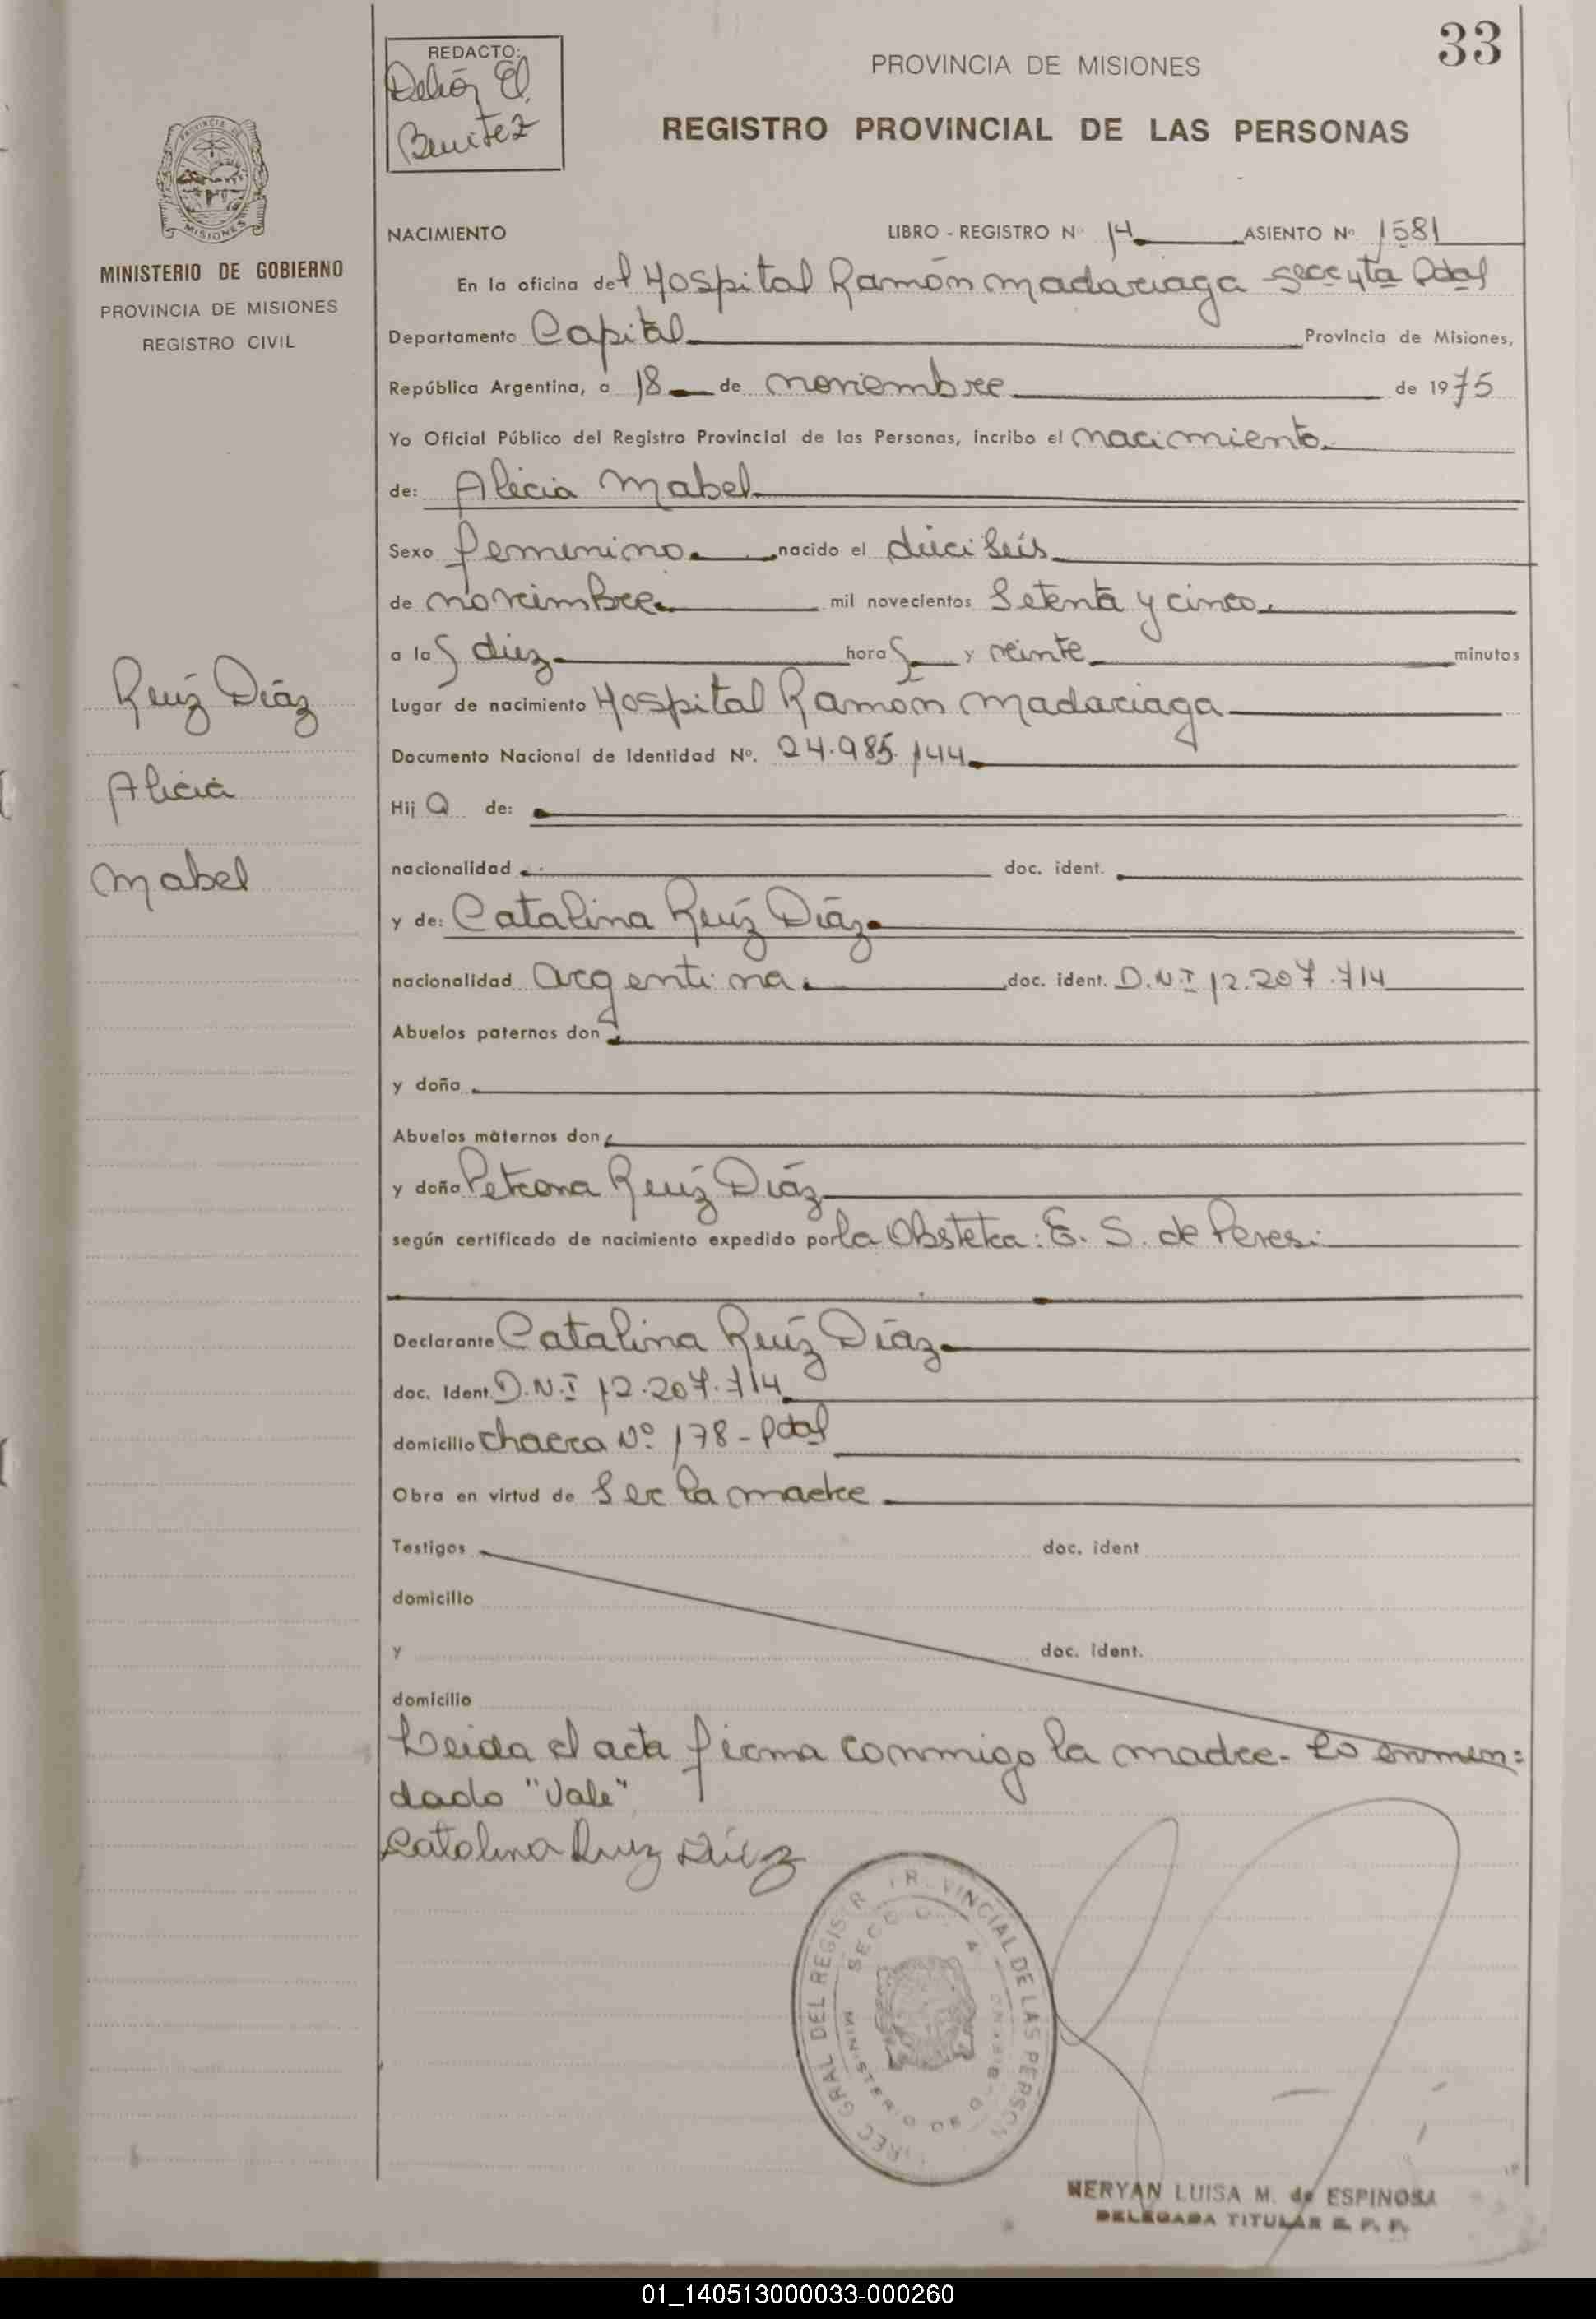 33
REDACTO:
Delión El.
Benitez
PROVINCIA DE MISIONES
REGISTRO PROVINCIAL DE LAS PERSONAS
MISIONES
MINISTERIO DE GOBIERNO
PROVINCIA DE MISIONES
REGISTRO CIVIL
NACIMIENTO LIBRO - REGISTRO Nº 14 ASIENTO Nº 1581
En la oficina del Hospital Ramón Madariaga secc 4ta Pdas
Departamento Capital Provincia de Misiones,
República Argentina, a 18 de noviembre de 1975
Yo Oficial Público del Registro Provincial de las Personas, incribo el nacimiento
de: Alicia Mabel
Sexo femenino nacido el dieciseis
de noviembre mil novecientos setenta y cinco
a las diez horas y veinte minutos
Lugar de nacimiento Hospital Ramón Madariaga
Documento Nacional de Identidad Nº. 24.985.144
Hija de:
nacionalidad doc. ident.
y de: Catalina Ruíz Díaz
nacionalidad argentina doc. ident. D.N.I 12.207.714
Abuelos paternos don
y doña
Abuelos maternos don
y doña Petrona Ruíz Díaz
según certificado de nacimiento expedido por la Obstetra: E. S. de Peresi
Declarante Catalina Ruíz Díaz
doc. Ident. D.N.I 12.207.714
domicilio chacra Nº 178 - Pdas
Obra en virtud de ser la madre
Testigos doc. ident
domicilio
y doc. ident.
domicilio
Leida el acta firma conmigo la madre - Lo enmen=
dado "Vale"
Catalina Ruiz Diaz
Ruíz Díaz
Alicia
Mabel
REC GRAL DEL REGISTR PROVINCIAL DE LAS PERSON
MINISTERIO DE GOBIERNO
NERYAN LUISA M. de ESPINOSA
DELEGADA TITULAR R. P. P.
01_140513000033-000260